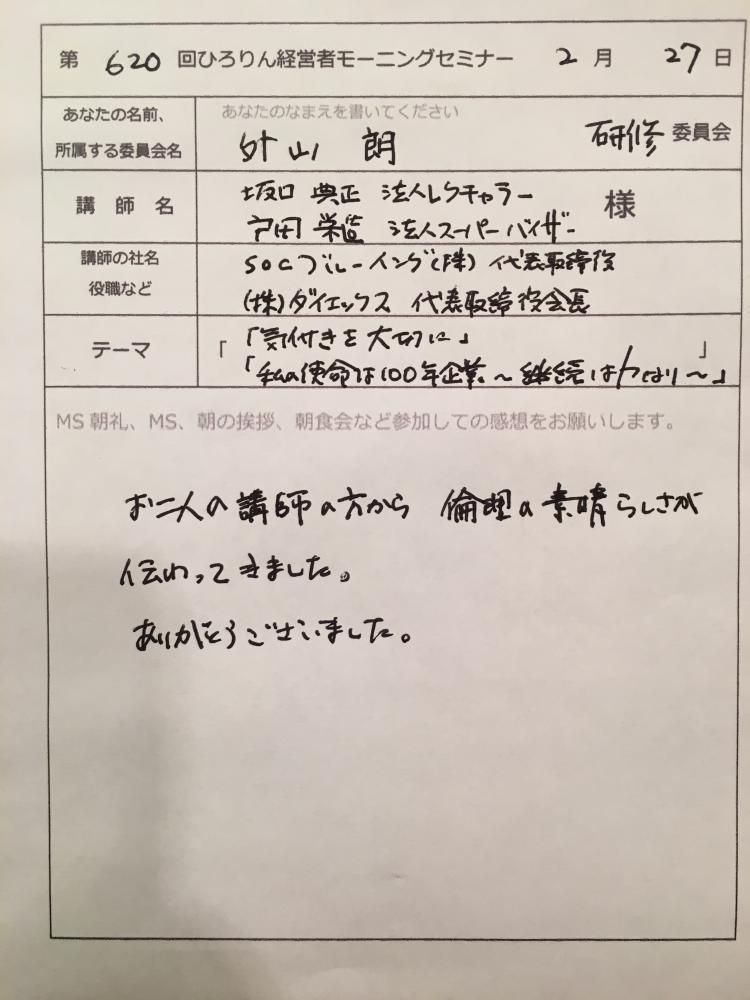 第 620 回ひろりん経営者モーニングセミナー 2 月 27 日
あなたの名前、
所属する委員会名
あなたのなまえを書いてください
外山 朗 研修 委員会
講 師 名
坂口 典正 法人レクチャラー
戸田 栄造 法人スーパーバイザー
様
講師の社名
役職など
SOCブルーイング(株) 代表取締役
(株)ダイエックス 代表取締役会長
テーマ
「「気付きを大切に」 」
「私の使命は100年企業〜継続は力なり〜」
MS 朝礼、MS、朝の挨拶、朝食会など参加しての感想をお願いします。
お二人の講師の方から 倫理の素晴らしさが
伝わってきました。
ありがとうございました。